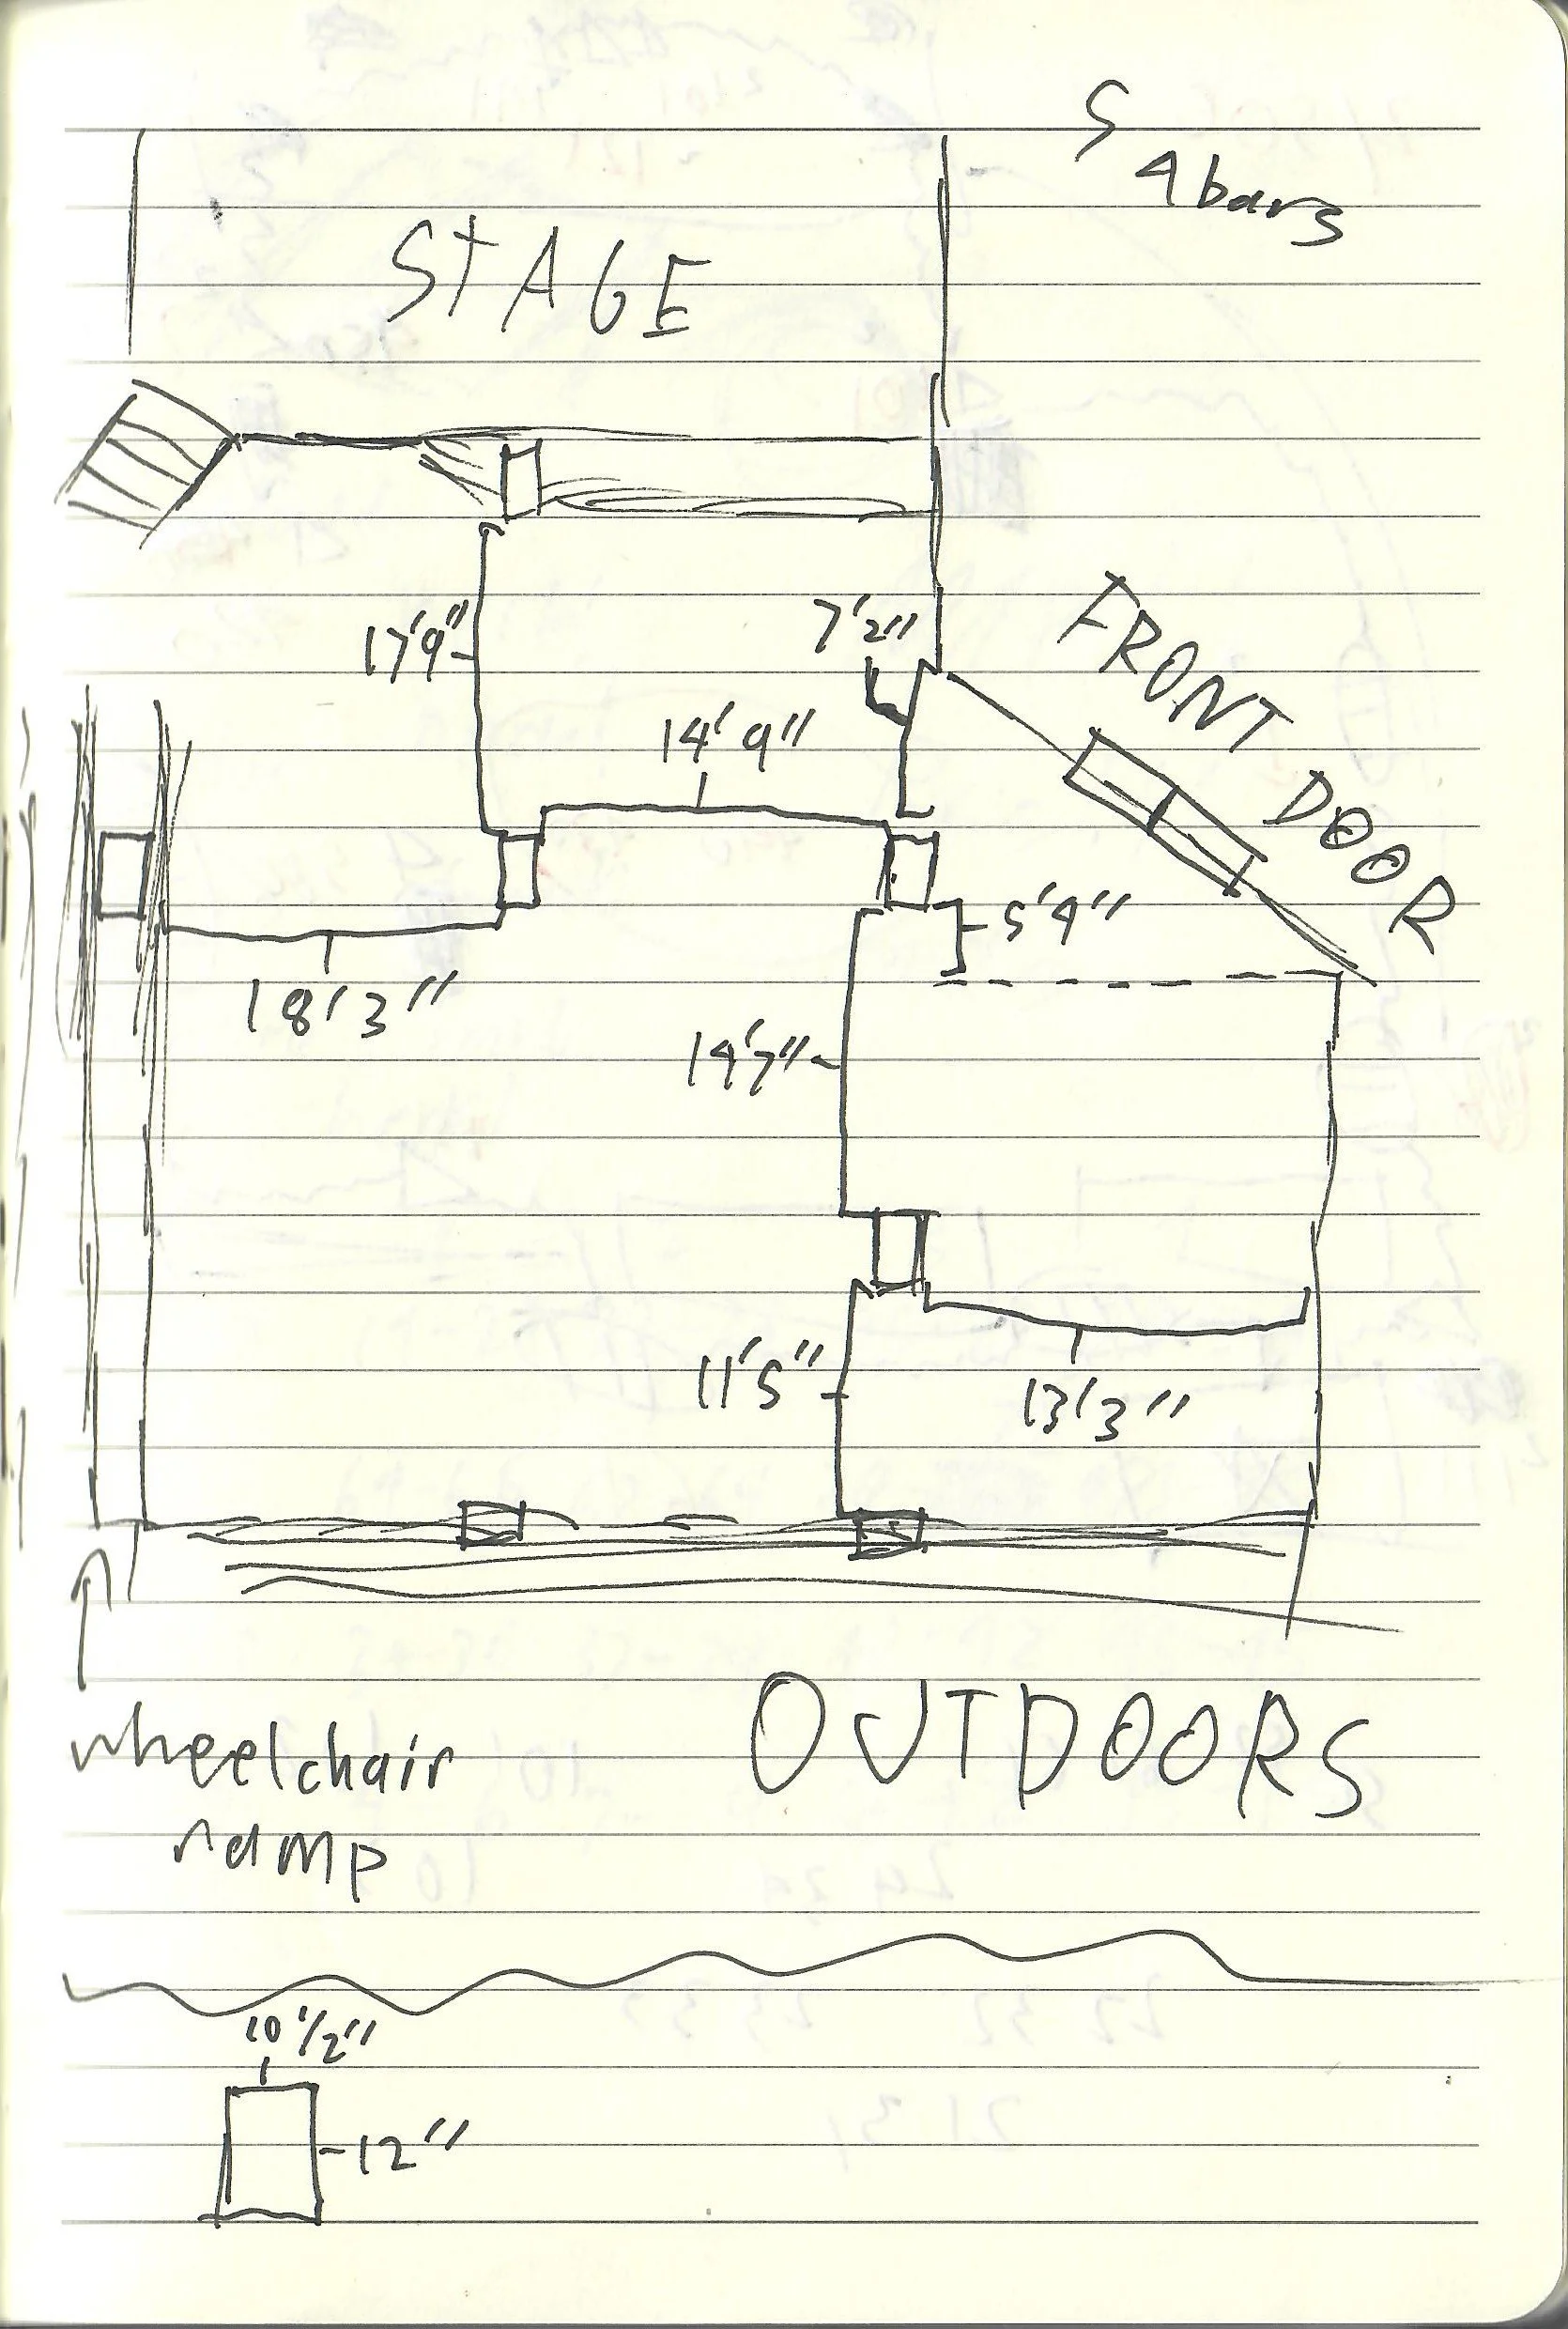 S
4 bars
STAGE
FRONT DOOR
17'9"
7'2"
14'9"
5'4"
18'3"
14'7"
11'5"
13'3"
wheelchair
ramp
OUTDOORS
10 1/2"
12"